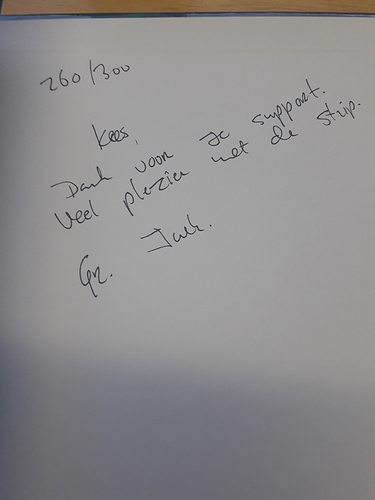 260/300
Kees,
Dank voor je support.
Veel plezier met de strip.
Gr.